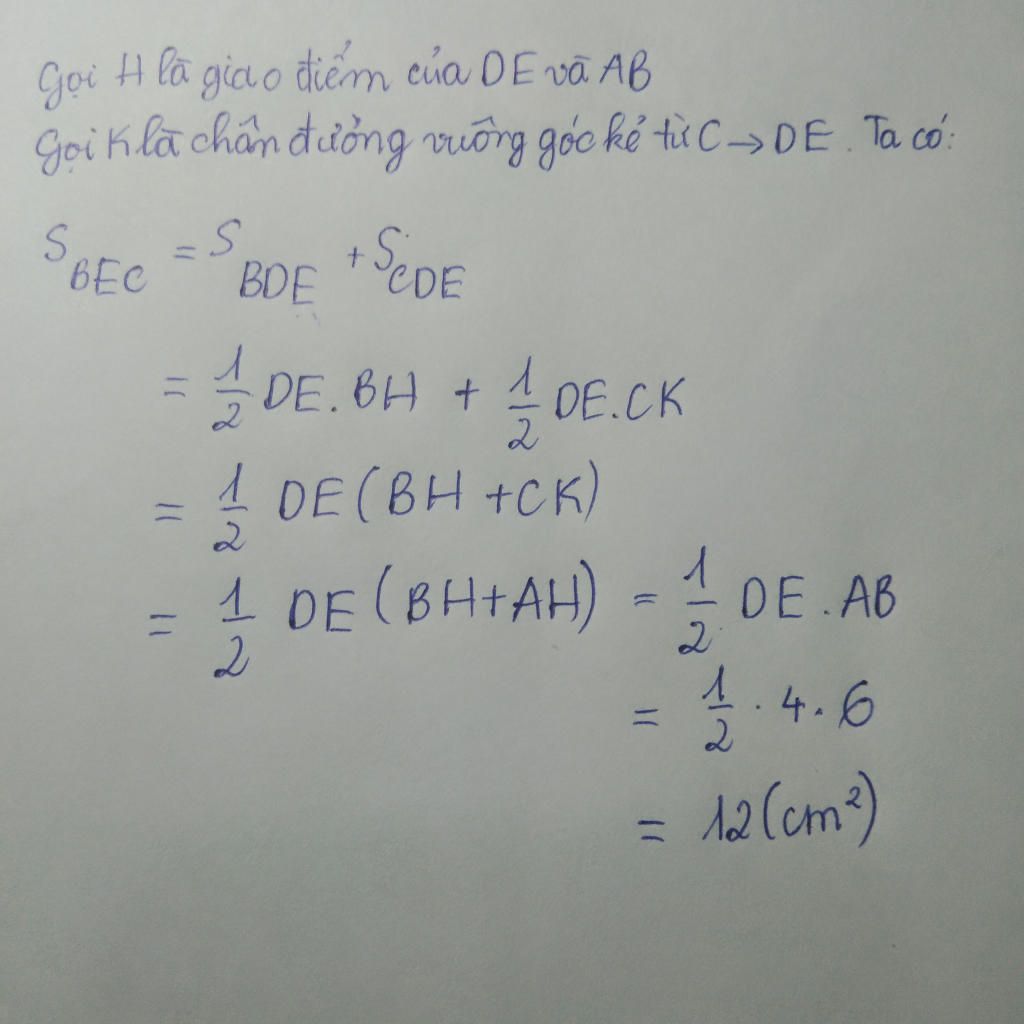 Gọi H là giao điểm của DE và AB
Gọi K là chân đường vuông góc kẻ từ C → DE. Ta có:
S_BEC = S_BDE + S_CDE
= 1/2 DE.BH + 1/2 DE.CK
= 1/2 DE(BH + CK)
= 1/2 DE(BH+AH) = 1/2 DE.AB
= 1/2 . 4 . 6
= 12(cm²)